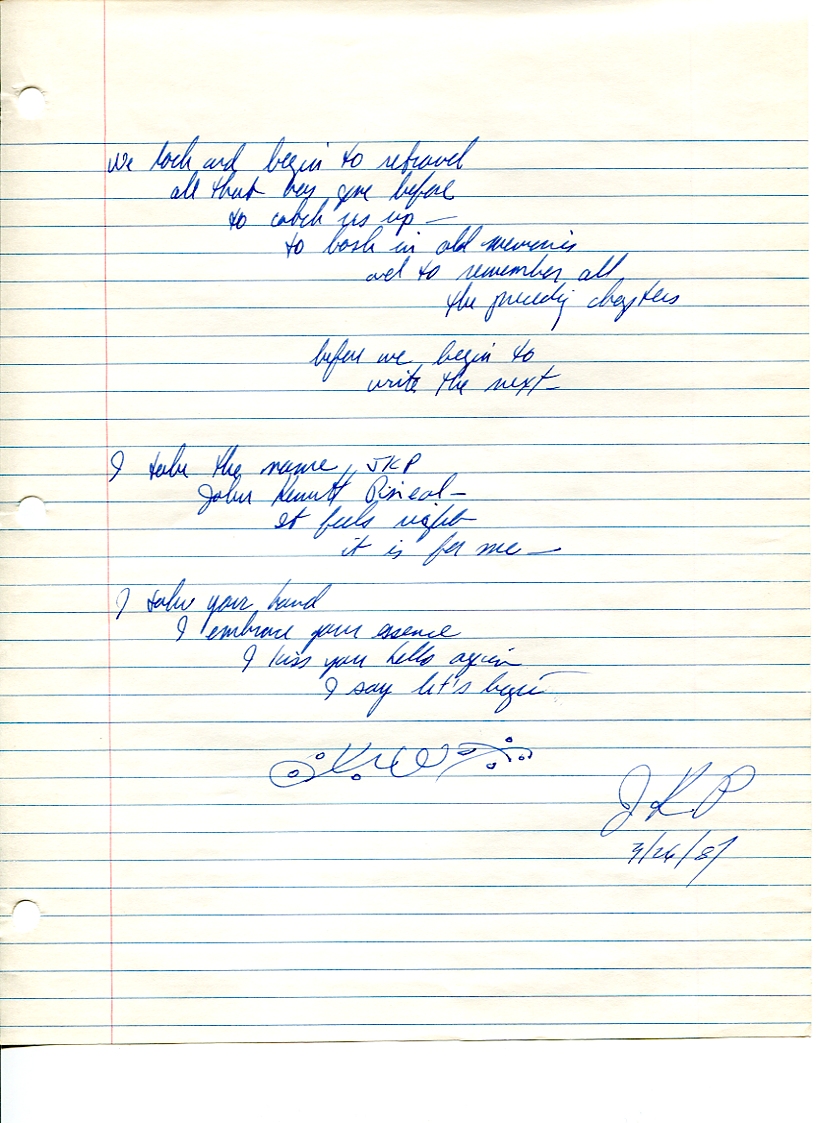 We look and begin to retravel
all that has gone before
to catch us up —
to bask in old memories
and to remember all
the preceding chapters
before we begin to
write the next —
I take the name, JKP
John
It feels right
it is for me —
I take your hand
I embrace your essence
I kiss you hello again
I say let's begin
JKP
3/26/87